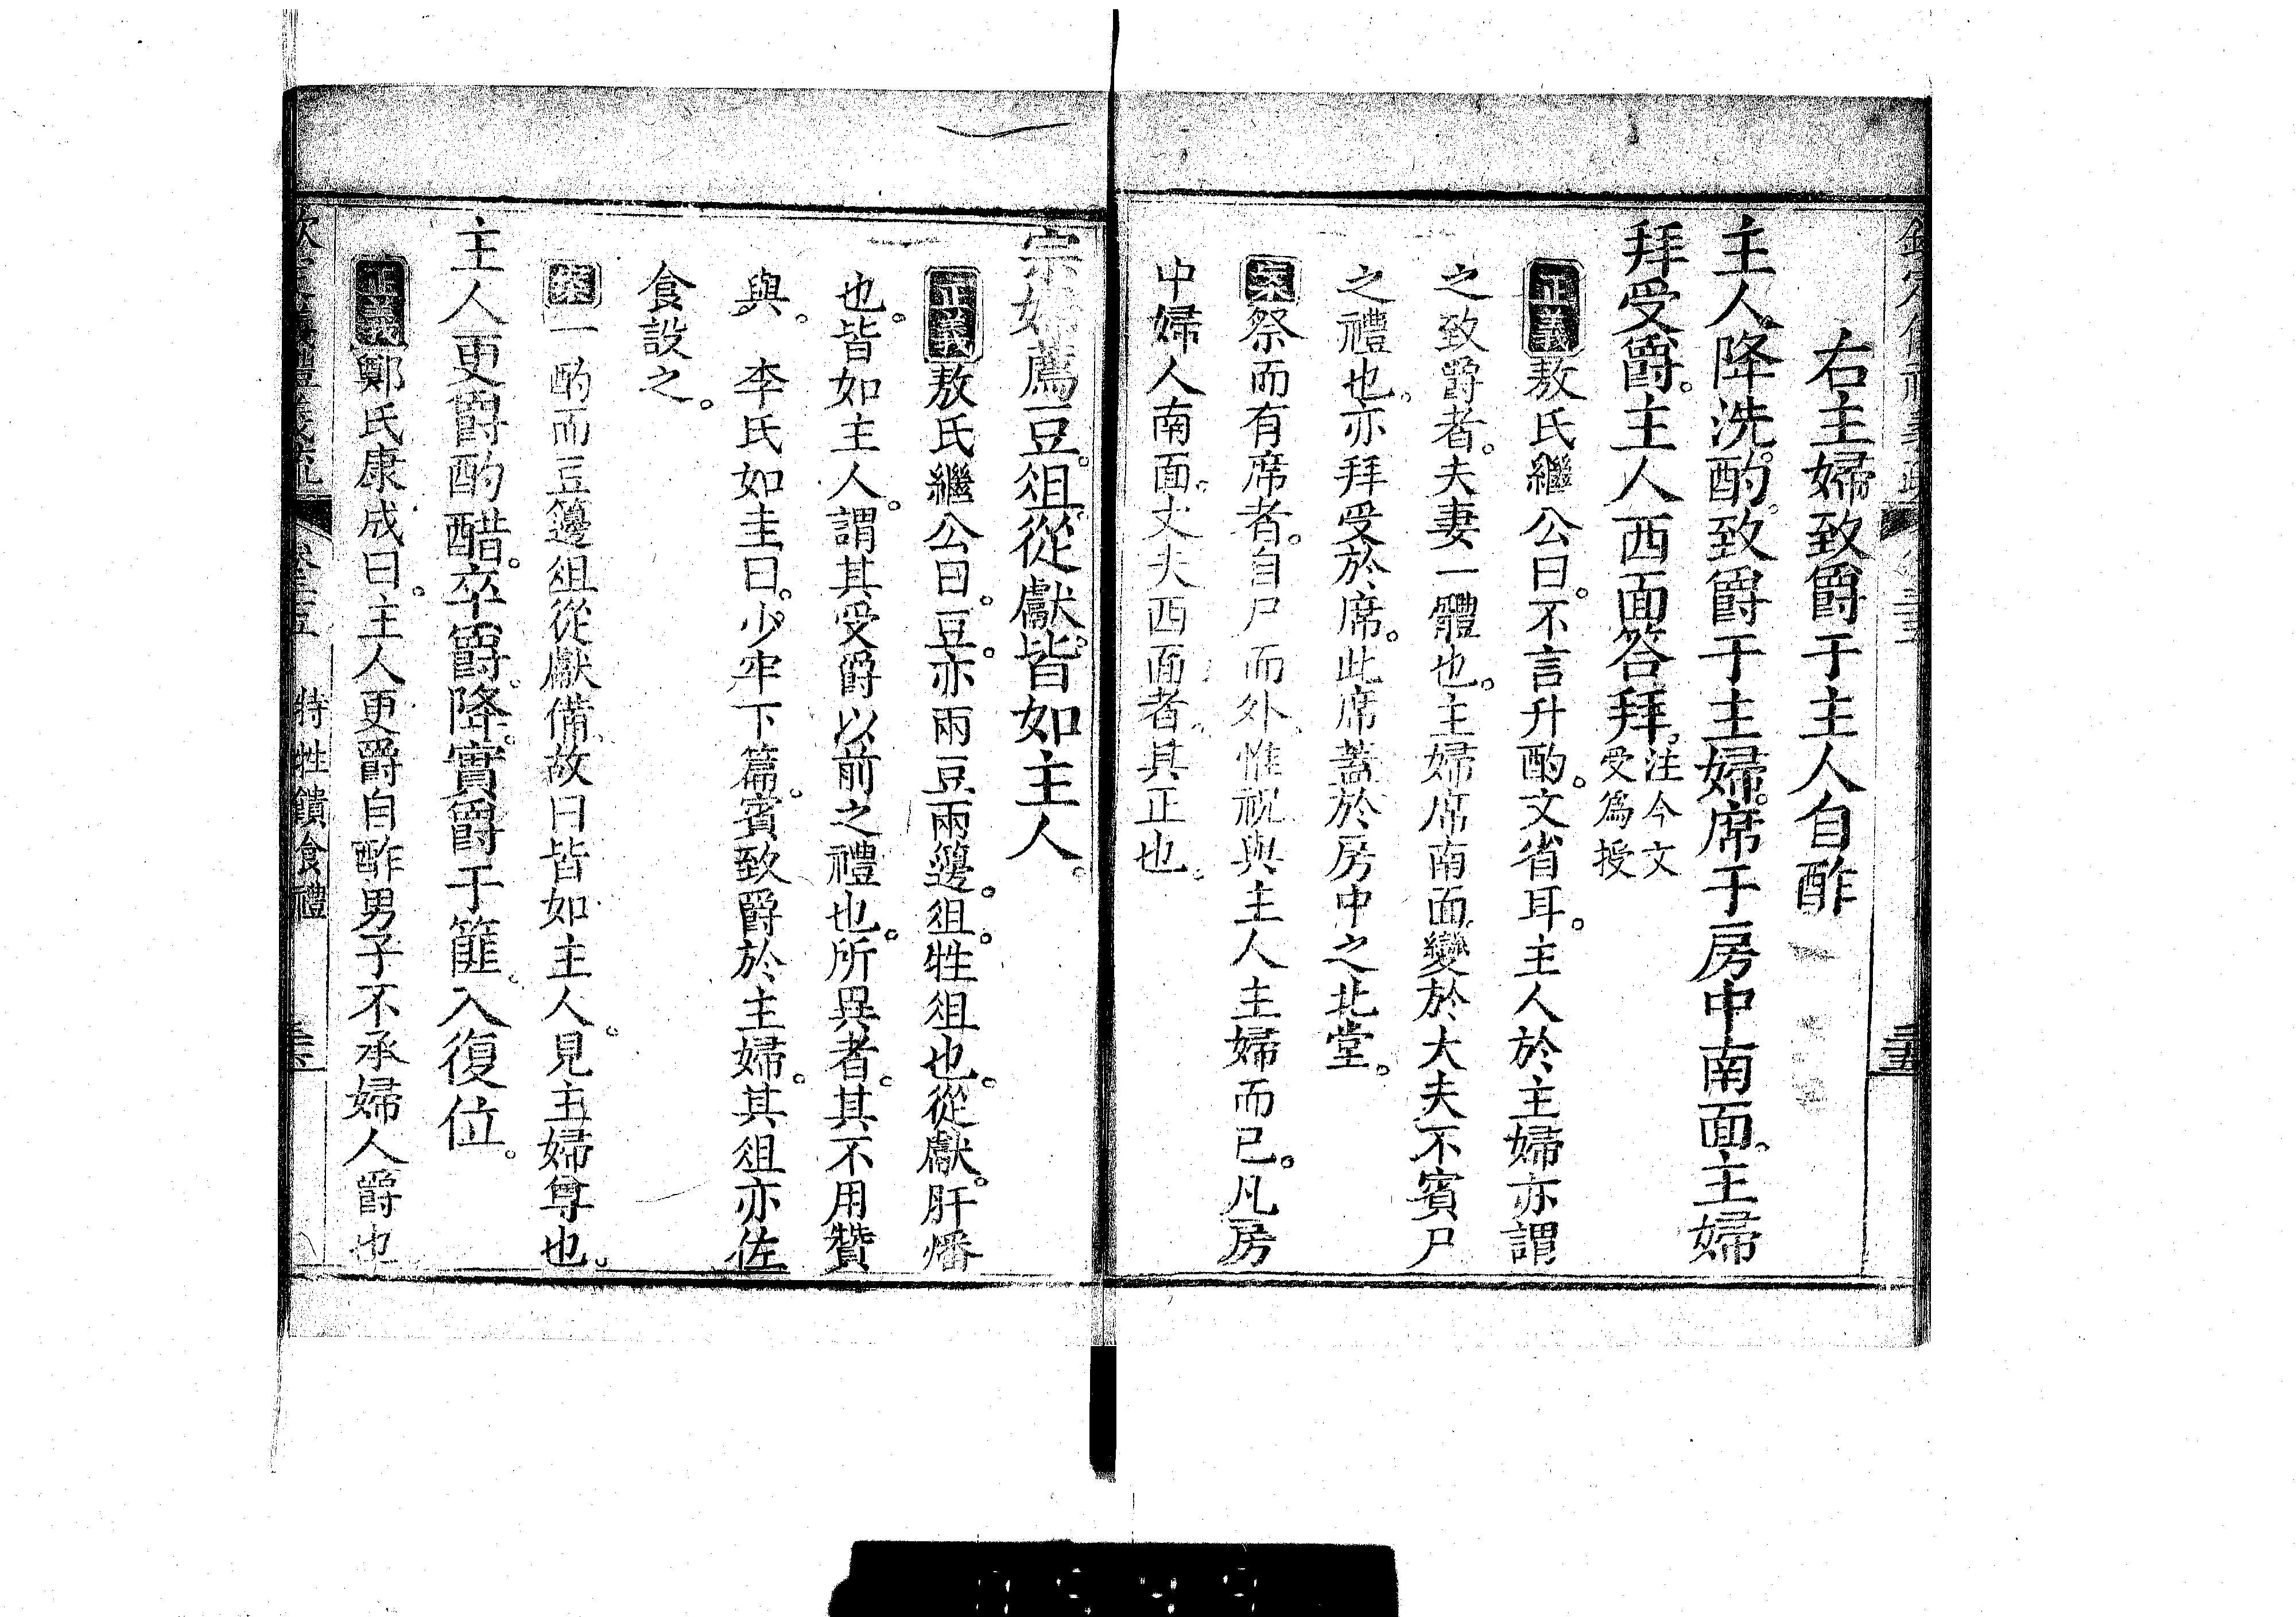 右主婦致爵于主人自酢
主人降洗酌。致爵于主婦。席于房中南面。主婦
拜受爵。主人西面答拜。注今文受爲授
正義敖氏繼公曰。不言升酌。文省耳。主人於主婦亦謂
之致爵者。夫妻一體也。主婦席南面。變於大夫不賓尸
之禮也。亦拜受於席。此席蓋於房中之北堂。
案祭而有席者。自尸而外。惟祝與主人主婦而已。凡房
中婦人南面。丈夫西面者。其正也。
宗婦薦豆。俎。從獻。皆如主人。
正義敖氏繼公曰。豆。亦兩豆兩籩。俎。牲俎也。從獻。肝燔
也。皆如主人。謂其受爵以前之禮也。所異者。其不用贊
與。 李氏如圭曰。少牢下篇。賓致爵於主婦。其俎亦佐
食設之。
案一酌而豆籩俎從獻備。故曰皆如主人。見主婦尊也。
主人更爵酌醋。卒爵。降。實爵于篚。入復位。
正義鄭氏康成曰。主人更爵自酢男子不承婦人爵也
特牲饋食禮